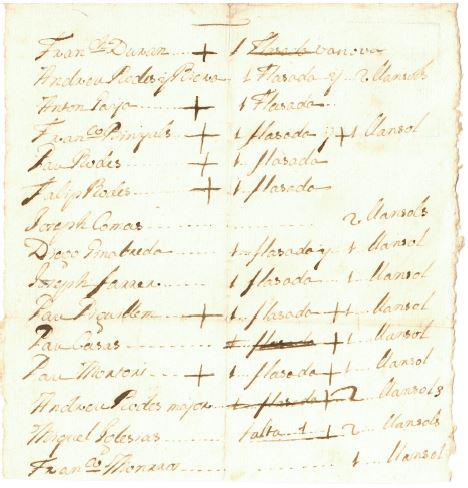 Fran.co Duran ..... + 1 ~~Flasada~~ vanova
Andreu Rodes y Riera 1 Flasada y 2 llansols
Anton ..... + 1 Flasada
Fran.co Pinyols + 1 flasada y + 1 llansol
Pau Rodes ..... + 1 flasada
Falip Rodes ..... + 1 flasada
Joseph Comas ..... 2 llansols
Diego ..... 1 flasada y 1 llansol
Joseph Farrer ..... 1 flasada 1 llansol
Pau ..... + 1 flasada + 1 llansol
Pau Casas ..... ~~1 flasada~~ + 1 llansol
Pau ..... + 1 flasada + 1 llansol
Andreu Rodes major ~~1 flasada~~ + 2 llansols
Miquel Iglesias ..... falta 1 + 2 llansols
Fran.co ..... 1 llansol